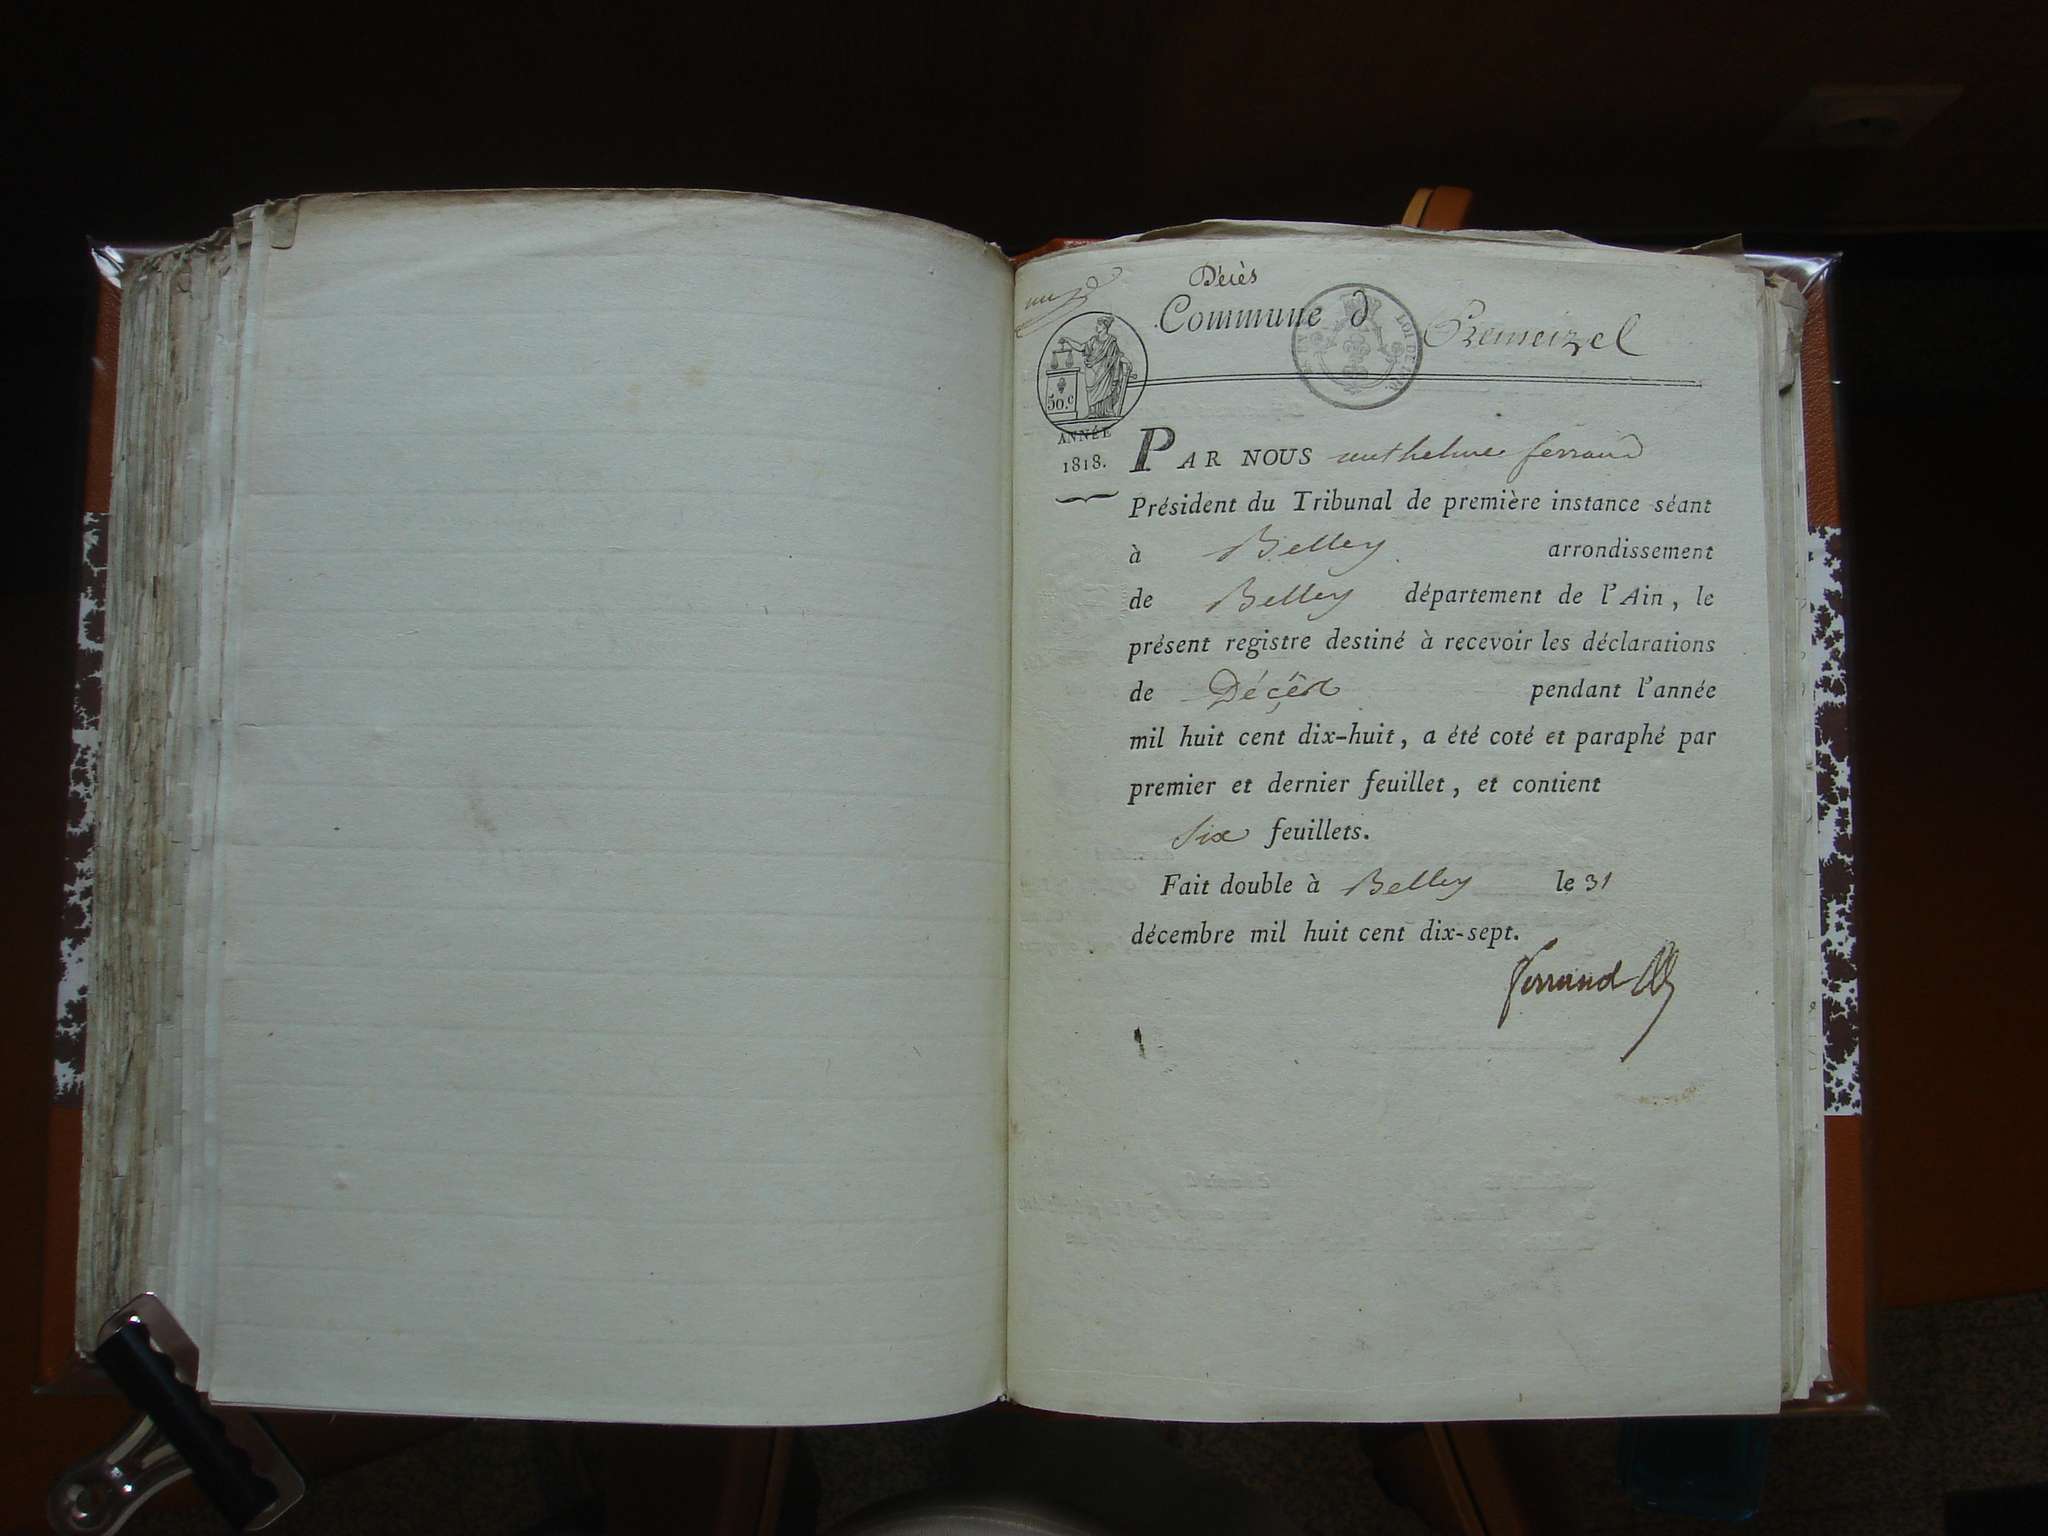 Décès
Commune d Premeizel
50.c
LOI DE
ANNÉE
1818.
PAR NOUS anthelme ferrand
Président du Tribunal de première instance séant
à Belley arrondissement
de Belley département de l'Ain, le
présent registre destiné à recevoir les déclarations
de Décès pendant l'année
mil huit cent dix-huit, a été coté et paraphé par
premier et dernier feuillet, et contient
six feuillets.
Fait double à Belley le 31
décembre mil huit cent dix-sept.
ferrand